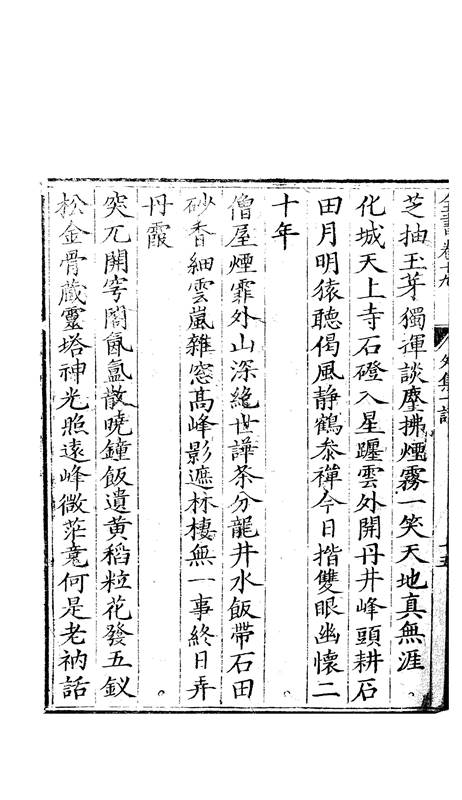 芝抽玉芽獨揮談麈拂煙霧一笑天地真無涯。
化城天上寺石磴入星躔雲外開丹井峰頭耕石
田月明猿聽偈風静鶴叅禪今日揩雙眼幽懷二
十年。
僧屋煙霏外山深絶世譁茶分龍井水飯帶石田
砂香細雲嵐雜窓高峰影遮林棲無一事終日弄
丹霞。
突兀開穹閣氤氳散曉鐘飯遺黄稻粒花發五釵
松金骨蔵靈塔神光照遠峰微茫竟何是老衲話